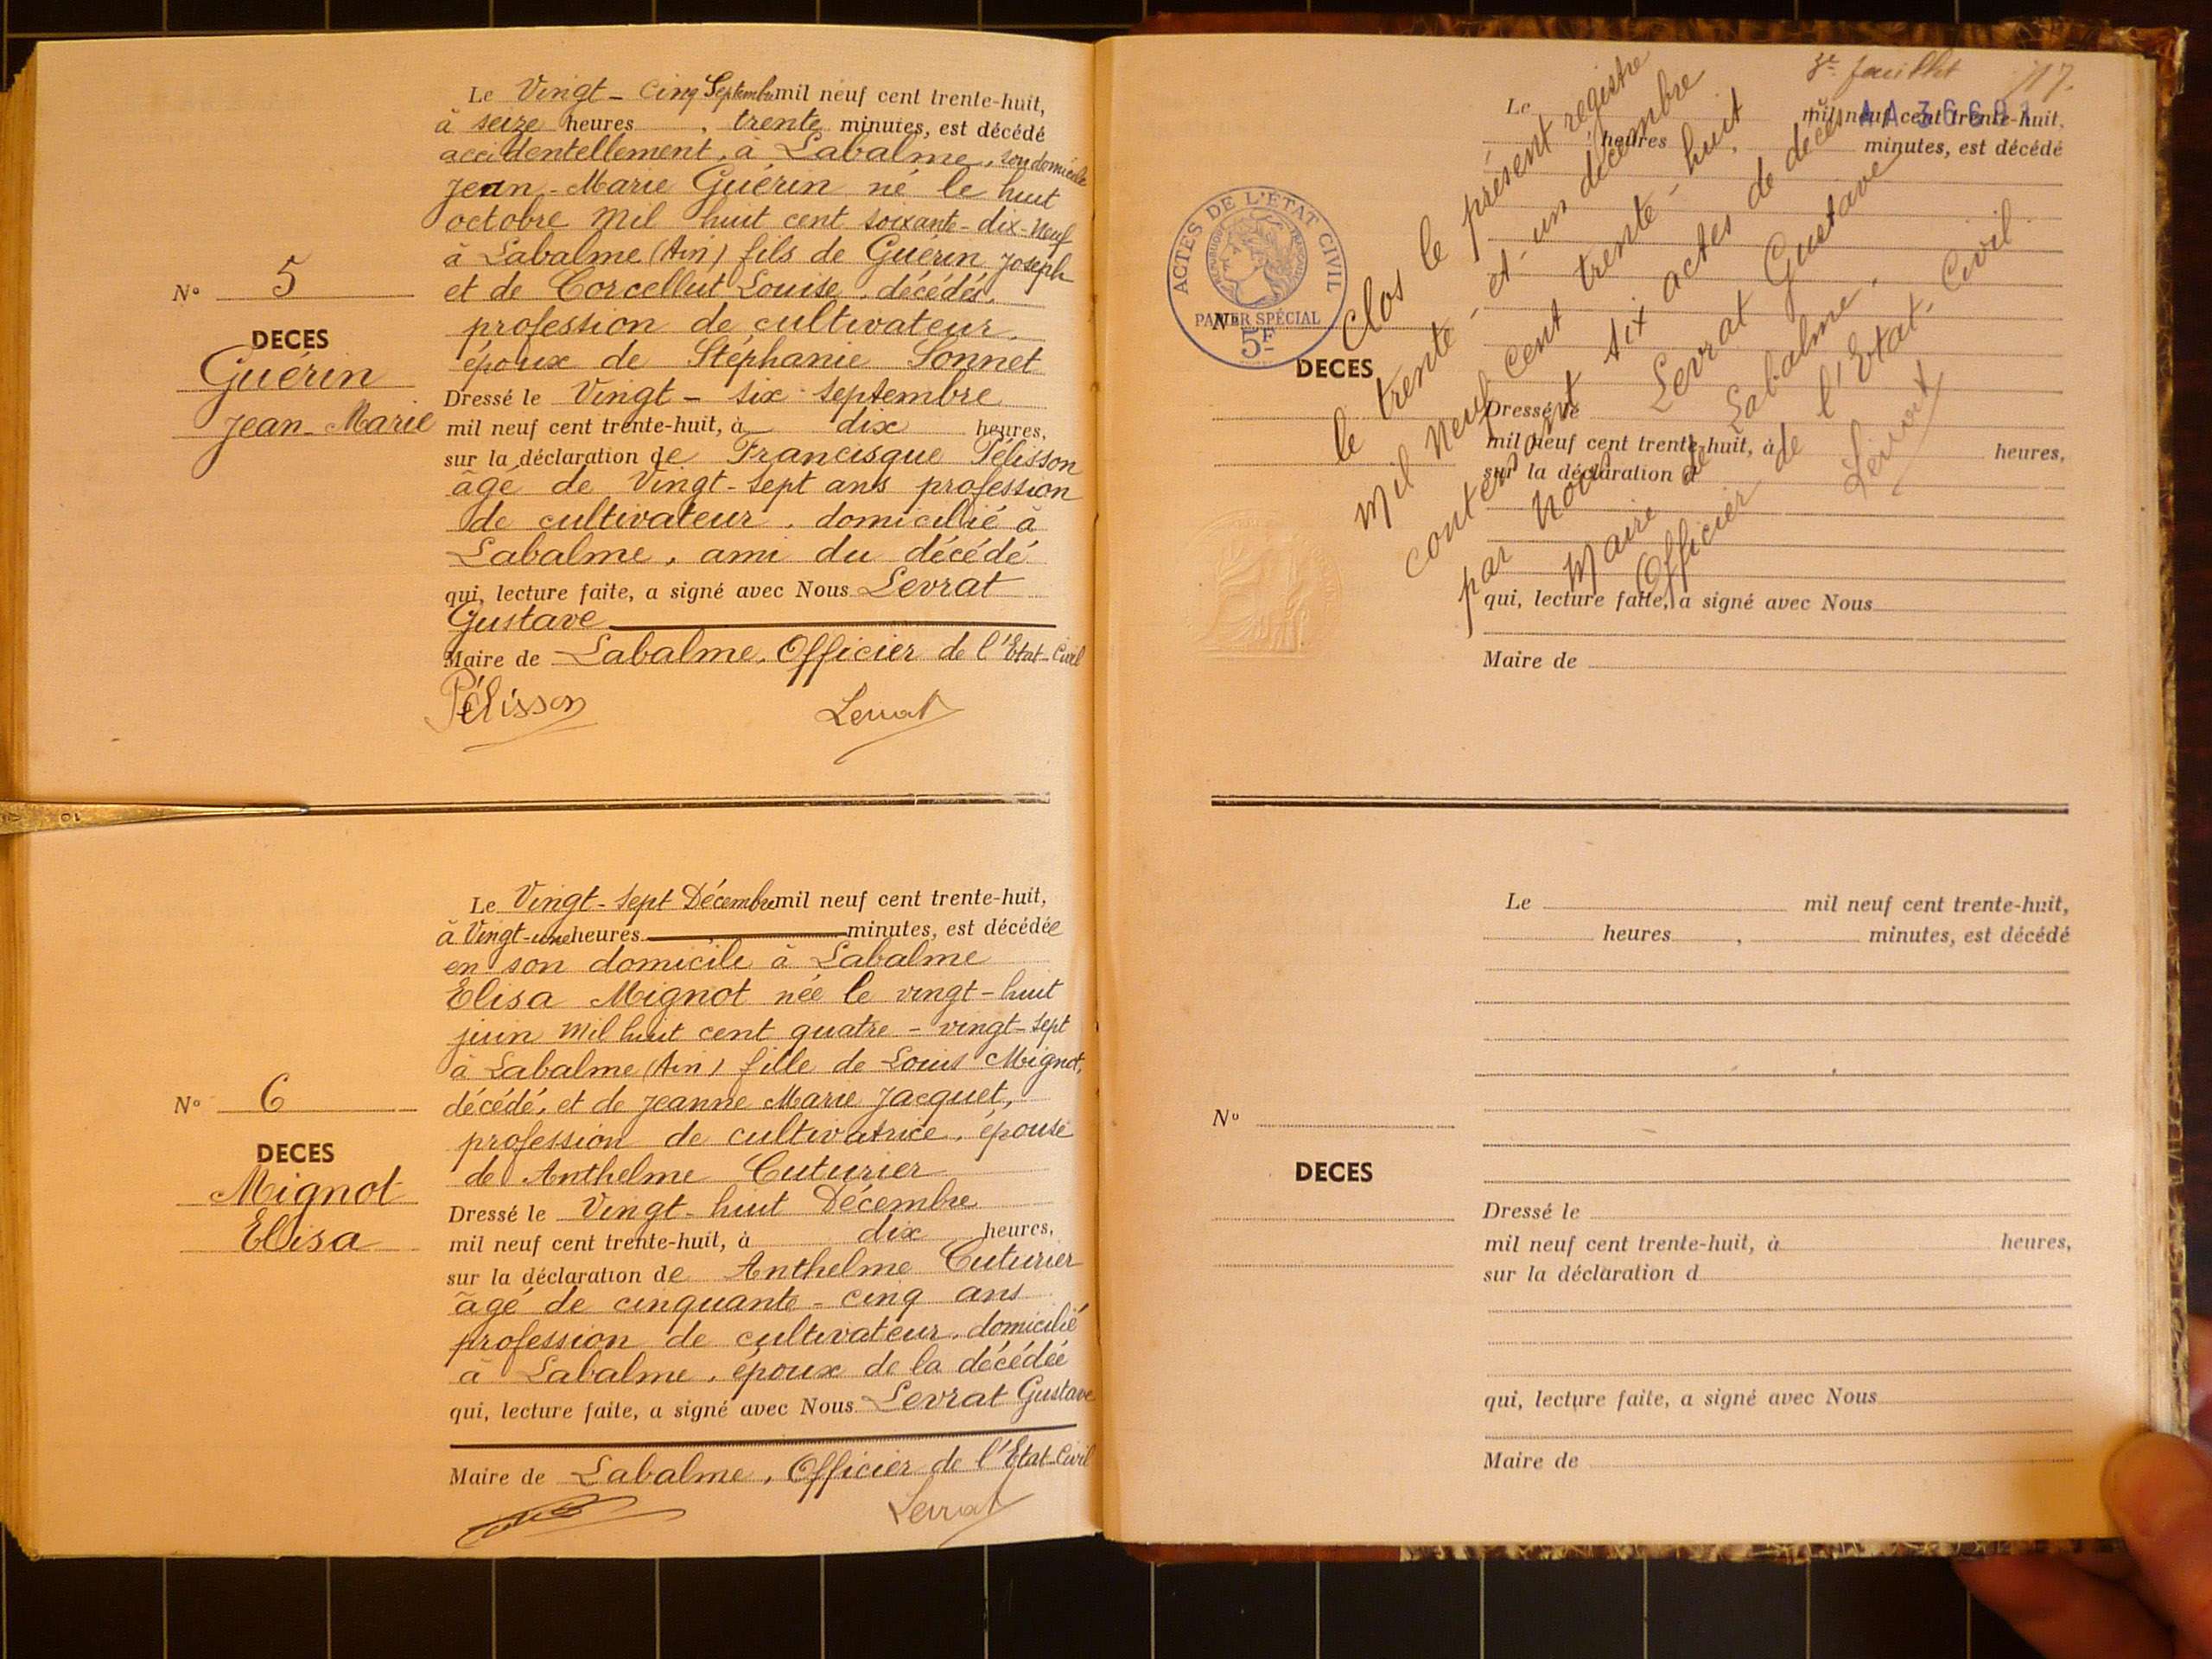 Le Vingt-cinq Septembre mil neuf cent trente-huit,
à seize heures, trente minutes, est décédé
accidentellement, à Labalme, son domicile
Jean-Marie Guérin né le huit
octobre mil huit cent soixante-dix-neuf
à Labalme (Ain) fils de Guérin Joseph
N° 5
et de Corcellut Louise, décédés,
profession de cultivateur,
DECES
époux de Stéphanie Sonnet
Guérin
Dressé le Vingt-six septembre
Jean-Marie
mil neuf cent trente-huit, à dix heures,
sur la déclaration de Francisque Pélisson
âgé de Vingt-sept ans profession
de cultivateur, domicilié à
Labalme, ami du décédé
qui, lecture faite, a signé avec Nous Levrat
Gustave
Maire de Labalme, Officier de l'Etat-Civil
Pélisson Levrat
Le Vingt-sept Décembre mil neuf cent trente-huit,
à Vingt-une heures minutes, est décédée
en son domicile à Labalme
Elisa Mignot née le vingt-huit
juin mil huit cent quatre-vingt-sept
à Labalme (Ain) fille de Louis Mignot,
N° 6
décédé, et de Jeanne Marie Jacquet,
profession de cultivatrice, épouse
DECES
de Anthelme Cuturier
Mignot
Dressé le Vingt-huit Décembre
Elisa
mil neuf cent trente-huit, à dix heures,
sur la déclaration de Anthelme Cuturier
âgé de cinquante-cinq ans
profession de cultivateur, domicilié
à Labalme, époux de la décédée
qui, lecture faite, a signé avec Nous Levrat Gustave
Maire de Labalme, Officier de l'Etat-Civil
Levrat
3e feuillet
17.
Le mil neuf cent trente-huit,
heures minutes, est décédé
ACTES DE L'ÉTAT CIVIL
RÉPUBLIQUE FRANÇAISE
PAPIER SPÉCIAL
5F
N°
DECES
Clos le présent registre
le trente-et-un décembre
mil neuf cent trente-huit,
contenant six actes de décès
par nous Levrat Gustave
Maire de Labalme,
Officier de l'Etat-Civil
Levrat
Dressé le
mil neuf cent trente-huit, à heures,
sur la déclaration d
qui, lecture faite, a signé avec Nous
Maire de
Le mil neuf cent trente-huit,
heures, minutes, est décédé
N°
DECES
Dressé le
mil neuf cent trente-huit, à heures,
sur la déclaration d
qui, lecture faite, a signé avec Nous
Maire de